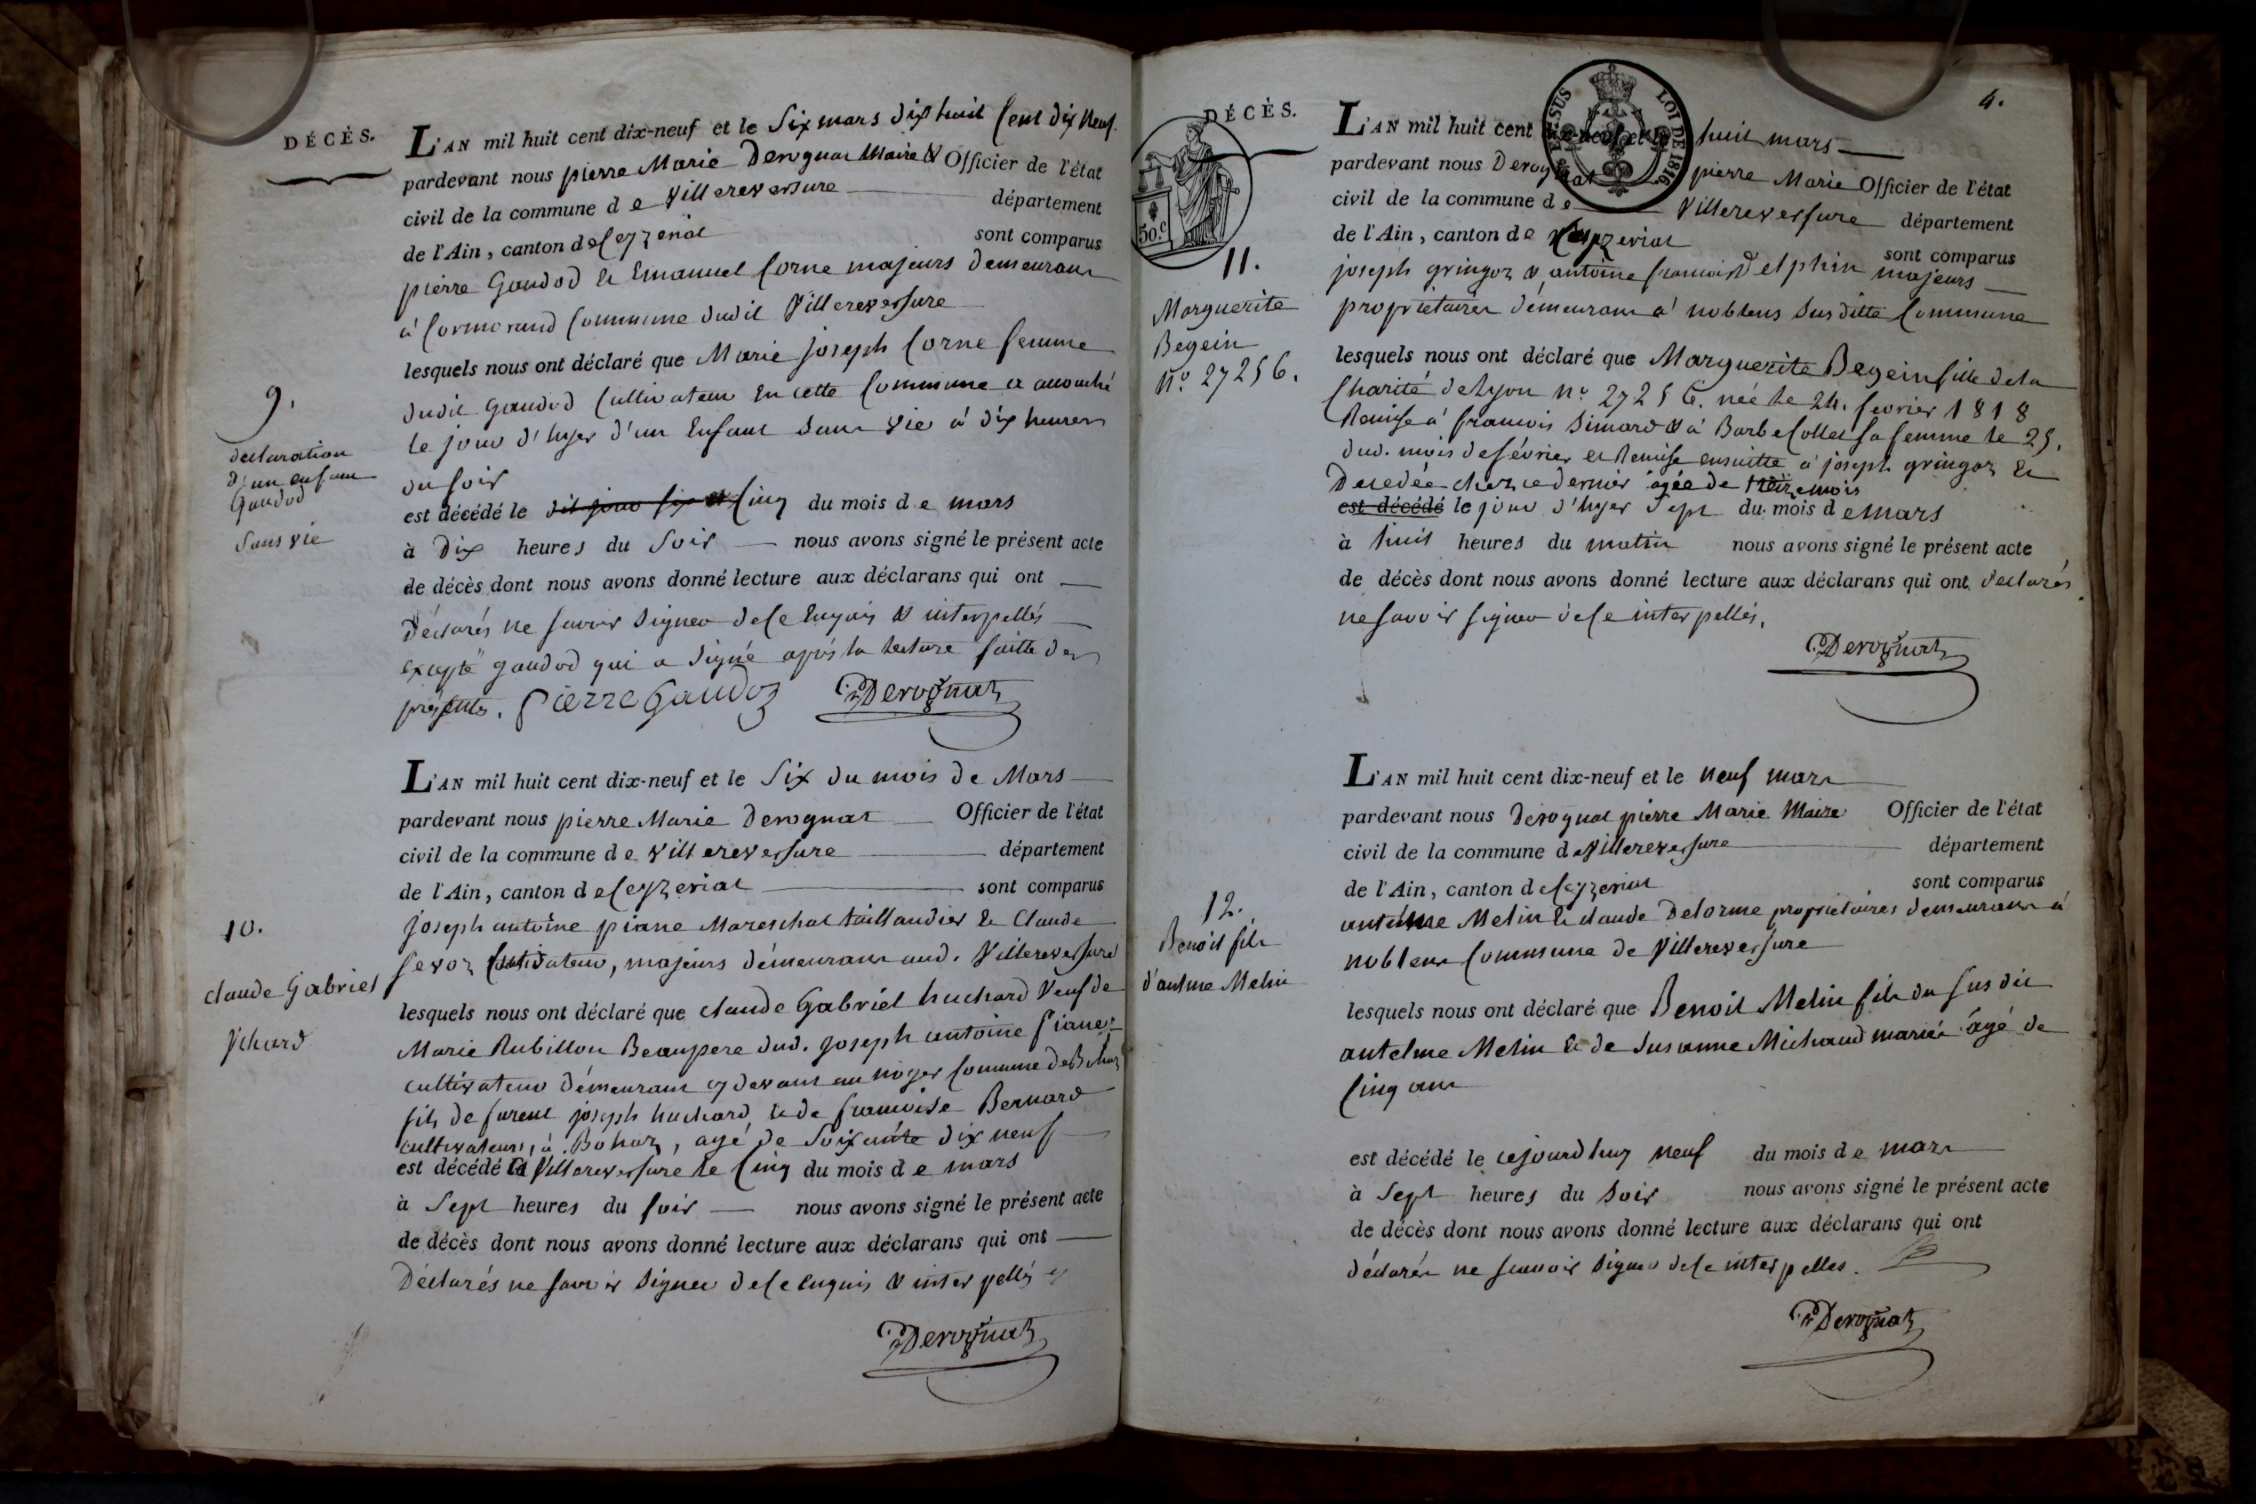 DÉCÈS.
L'AN mil huit cent dix-neuf et le Six mars dix huit Cent dix Neuf.
pardevant nous pierre Marie Derognat Maire & Officier de l'état
civil de la commune de Villereversure département
de l'Ain, canton de Ceyzeriat sont comparus
pierre Gaudod et Emanuel Corne majeurs demeurant
à Cormorand Commune dudit Villereversure
lesquels nous ont déclaré que Marie joseph Corne femme
dudit Gaudod Cultivateur en cette Commune a accouché
le jour d'hyer d'un Enfant Sans vie à dix heures
du soir
est décédé le Cinq du mois de mars
à Dix heures du Soir nous avons signé le présent acte
de décès dont nous avons donné lecture aux déclarans qui ont
déclarés ne savoir signer de Ce Enquis & interpellés
excepté gaudod qui a signé après la lecture faitte des
présentes. Pierre Gaudoz Derognat
9.
declaration
d'un enfant
Gaudod
Sans vie
L'AN mil huit cent dix-neuf et le Six du mois de Mars
pardevant nous pierre Marie Derognat Officier de l'état
civil de la commune de Villereversure département
de l'Ain, canton de Ceyzeriat sont comparus
joseph antoine piane Mareschal taillandier & Claude
sevoz Cultivateur, majeurs démeurant aud. Villereversure
lesquels nous ont déclaré que claude Gabriel huchard Veuf de
Marie Rubillon Beaupere dud. joseph antoine piane
cultivateur démeurant cy devant au noyer Comune de Bohaz
fils de furent joseph huchard & de francoise Bernard
cultivateurs, à Bohaz, agé de Soixante dix neuf
est décédé à Villereversure le Cinq du mois de mars
à Sept heures du soir nous avons signé le présent acte
de décès dont nous avons donné lecture aux déclarans qui ont
Déclarés ne savoir signer de Ce Enquis & interpellés
Derognat
10.
claude Gabriel
Vchard
4.
DÉCÈS.
50.c
LOI DE 1816
L'AN mil huit cent dix-neuf et le huit mars
pardevant nous Derognat pierre Marie Officier de l'état
civil de la commune de Villereversure département
de l'Ain, canton de Ceyzeriat sont comparus
joseph gringoz & antoine francois Delphin majeurs
propriétaires démeurant à noblens Susditte Commune
lesquels nous ont déclaré que Marguerite Begein fille de la
Charité de Lyon n.o 27256. née le 24. fevrier 1818
Remise à francois Simard & à Barbe Collet sa femme le 25.
dud. mois de février et Remise ensuitte à joseph gringoz &
Decedée chez ce dernier agée de treize mois
est décédé le jour d'hyer Sept du mois de mars
à huit heures du matin nous avons signé le présent acte
de décès dont nous avons donné lecture aux déclarans qui ont declarés
ne savoir signer de Ce interpellés.
Derognat
11.
Marguerite
Begein
N.o 27256.
L'AN mil huit cent dix-neuf et le neuf mars
pardevant nous Derognat pierre Marie Maire Officier de l'état
civil de la commune de Villereversure département
de l'Ain, canton de Ceyzeriat sont comparus
antelme Melin & claude Delorme propriétaires demeurant à
noblens Commune de Villereversure
lesquels nous ont déclaré que Benoit Melin fils du susdit
antelme Melin & de Susanne Michaud mariés agé de
Cinq ans
est décédé le cejourdhuy neuf du mois de mars
à Sept heures du Soir nous avons signé le présent acte
de décès dont nous avons donné lecture aux déclarans qui ont
déclarés ne scavoir signer de Ce interpelles.
Derognat
12.
Benoit fils
d'antme Melin